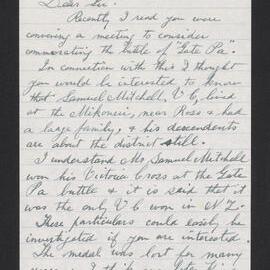 Dear Sir.
Recently I read you were
convening a meeting to consider
commorating the battle of "Gate Pa".
In connection with this I thought
you would be interested to know
that Samuel Mitchell, V.C, lived
at the Mikonui, near Ross & had
a large family, & his descendents
are about the district still.
I understand Mr Samuel Mitchell
won his Victoria Cross at the Gate
Pa battle & it is said that it
was the only V C won in N.Z.
These particulars could easily be
investigated if you are interested.
The medal was lost for many
years